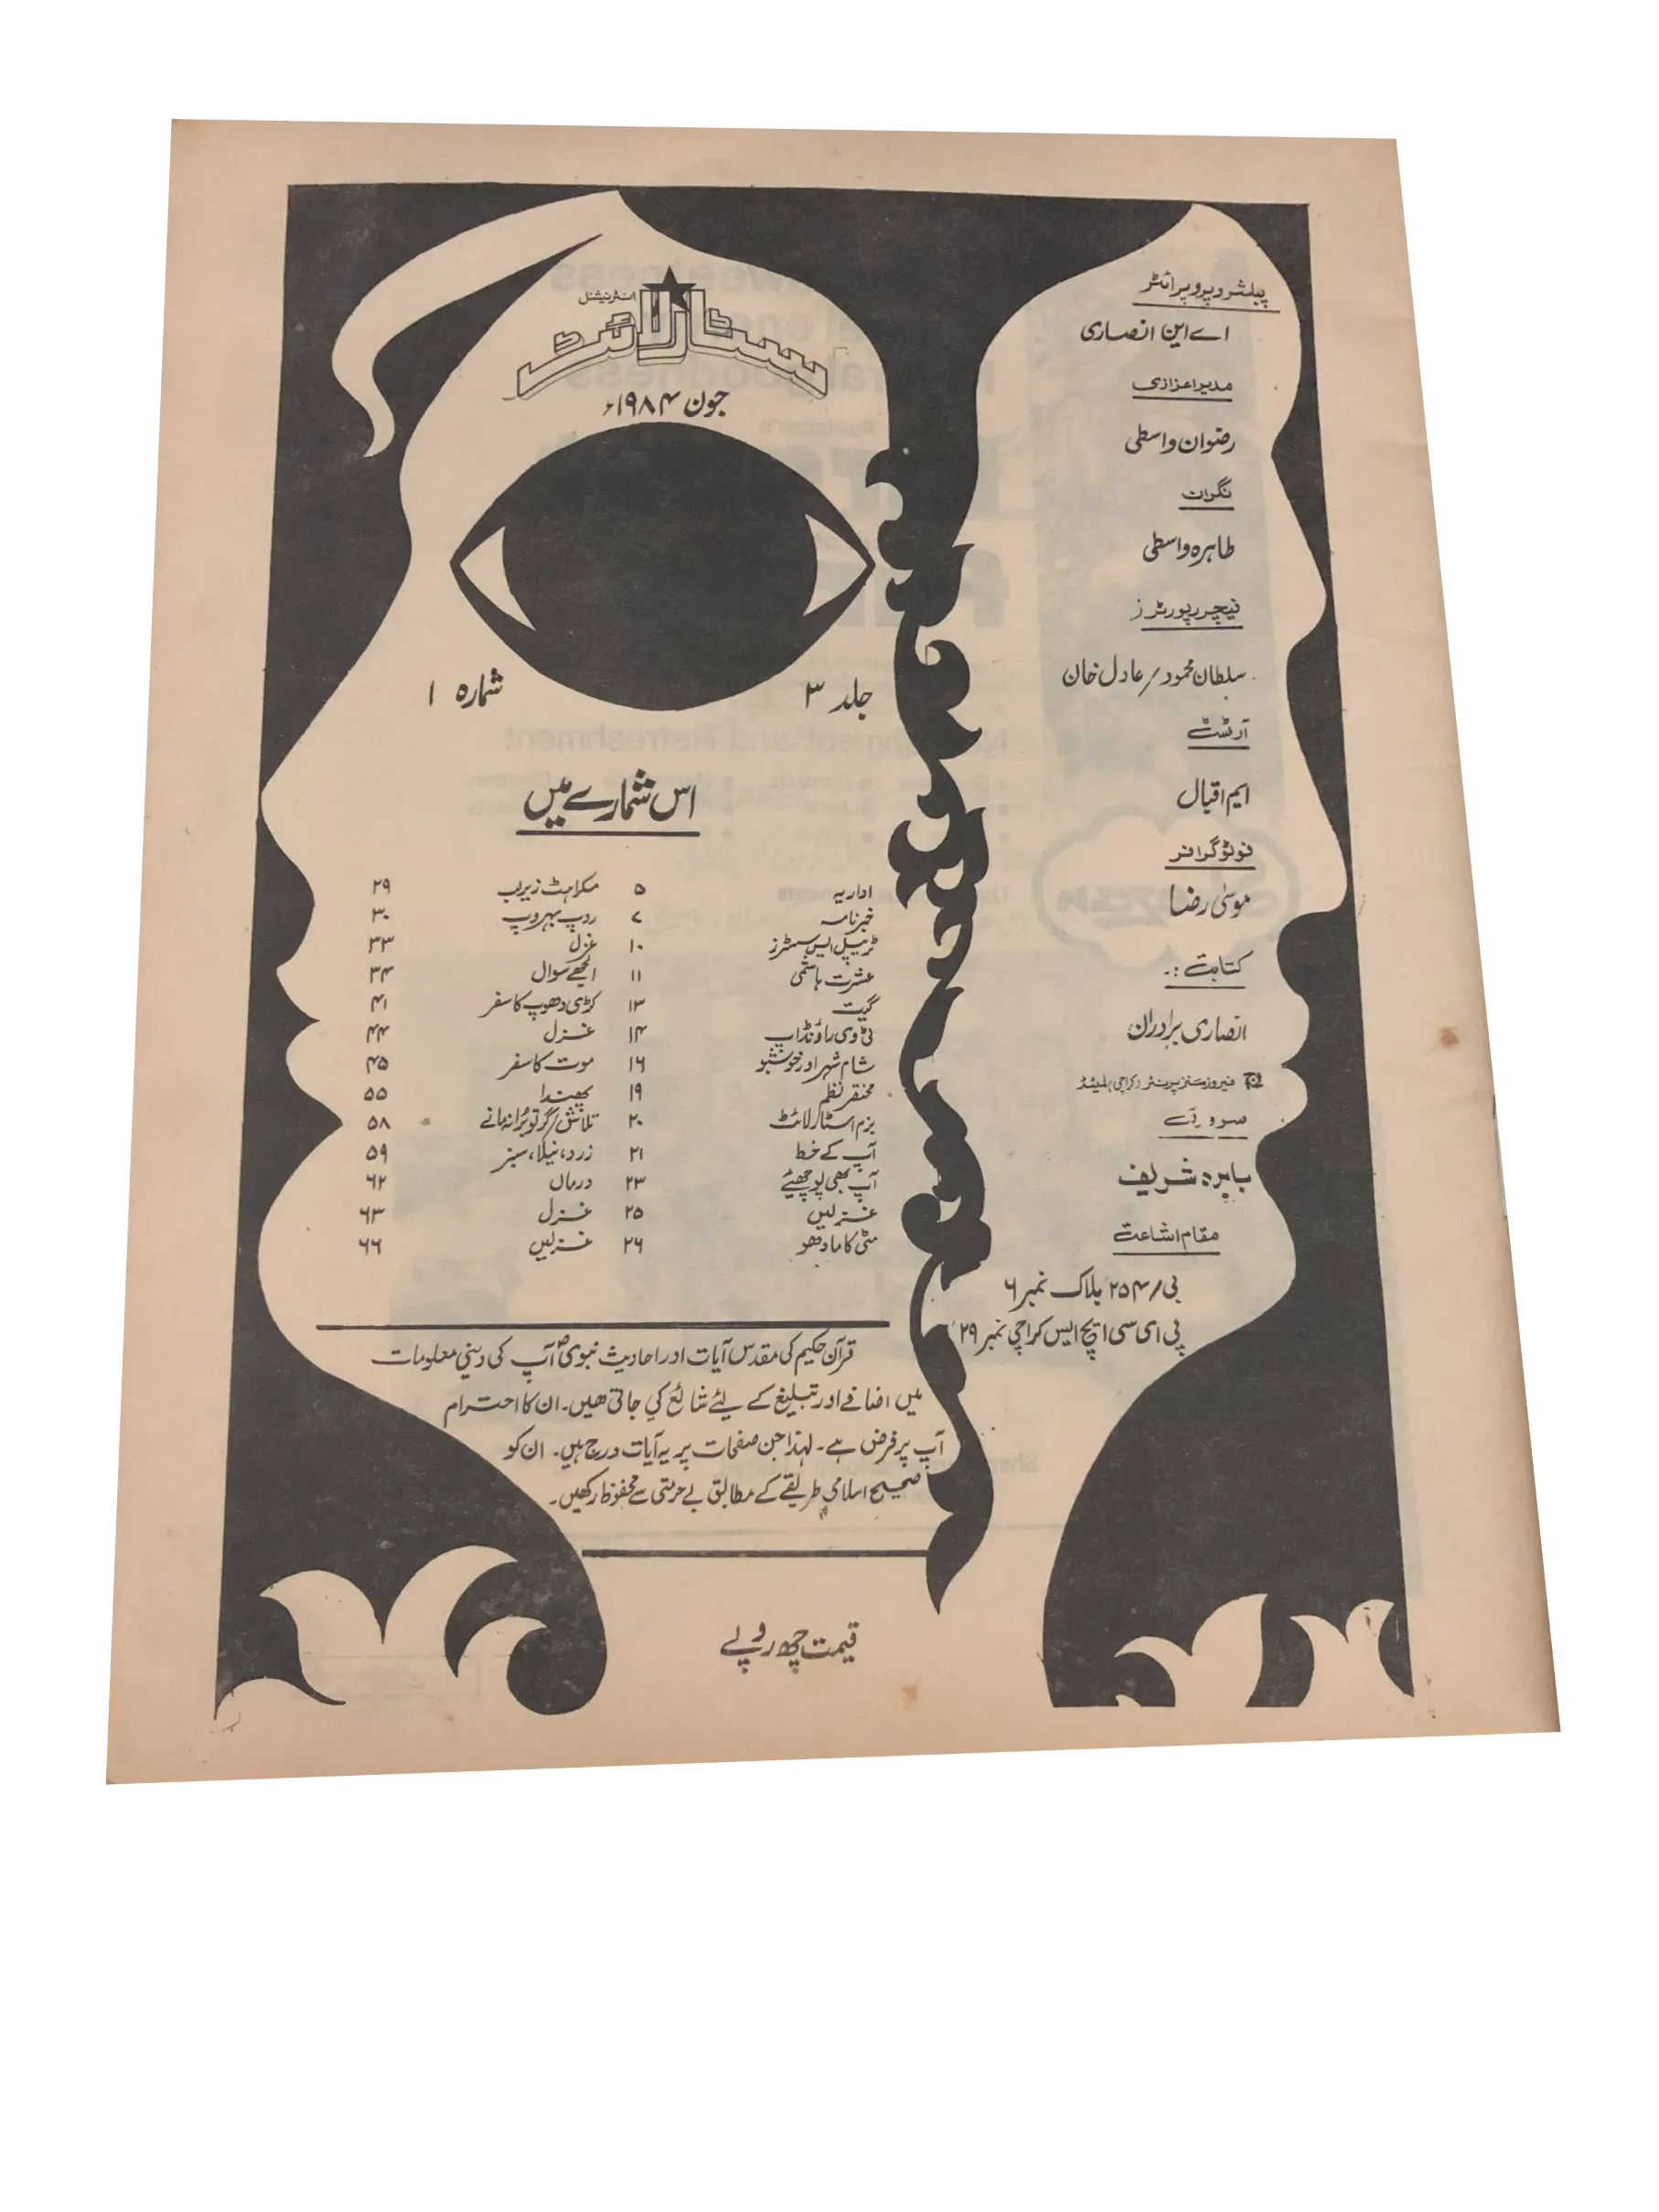 پبلشر و پروپرائٹر
اے این انصاری
مدیر اعزازی
رضوان واسطی
نگران
طاہرہ واسطی
فیچر رپورٹرز
سلطان محمود/عادل خان
آرٹسٹ
ایم اقبال
فوٹوگرافر
موسیٰ رضا
کتابت :۔
انصاری برادران
فیروز سنز پرینٹر (کراچی) لمیٹڈ
سرورق
بابرہ شریف
مقام اشاعت
بی/۲۵۴ بلاک نمبر ۶
پی ای سی ایچ ایس کراچی نمبر ۲۹
انٹرنیشنل
سٹار لائٹ
جون ۱۹۸۴ء
جلد ۳ شمارہ ۱
اس شمارے میں
اداریہ ۵ مسکراہٹ زیرلب ۲۹
خبرنامہ ۷ روپ بہروپ ۳۰
ٹریپل ایس سسٹرز ۱۰ غزل ۳۳
عشرت ہاشمی ۱۱ الجھے سوال ۳۴
گیت ۱۳ کڑی دھوپ کا سفر ۴۱
ٹی وی راؤنڈ اپ ۱۴ غزل ۴۴
شام شہر اور خوشبو ۱۶ موت کا سفر ۴۵
مختصر نظم ۱۹ پھندا ۵۵
بزم اسٹار لائٹ ۲۰ تلاش/گر تو برا نہ مانے ۵۸
آپ کے خط ۲۱ زرد، نیلا، سبز ۵۹
آپ بھی پوچھیئے ۲۳ درماں ۶۲
غزلیں ۲۵ غزل ۶۳
مٹی کا مادھو ۲۶ غزلیں ۶۶
قرآن حکیم کی مقدس آیات اور احادیث نبویؐ آپ کی دینی معلومات
میں اضافے اور تبلیغ کے لئے شائع کی جاتی ھیں۔ ان کا احترام
آپ پر فرض ہے۔ لہذا جن صفحات پر یہ آیات درج ہیں۔ ان کو
صحیح اسلامی طریقے کے مطابق بے حرمتی سے محفوظ رکھیں۔
قیمت چھ روپے